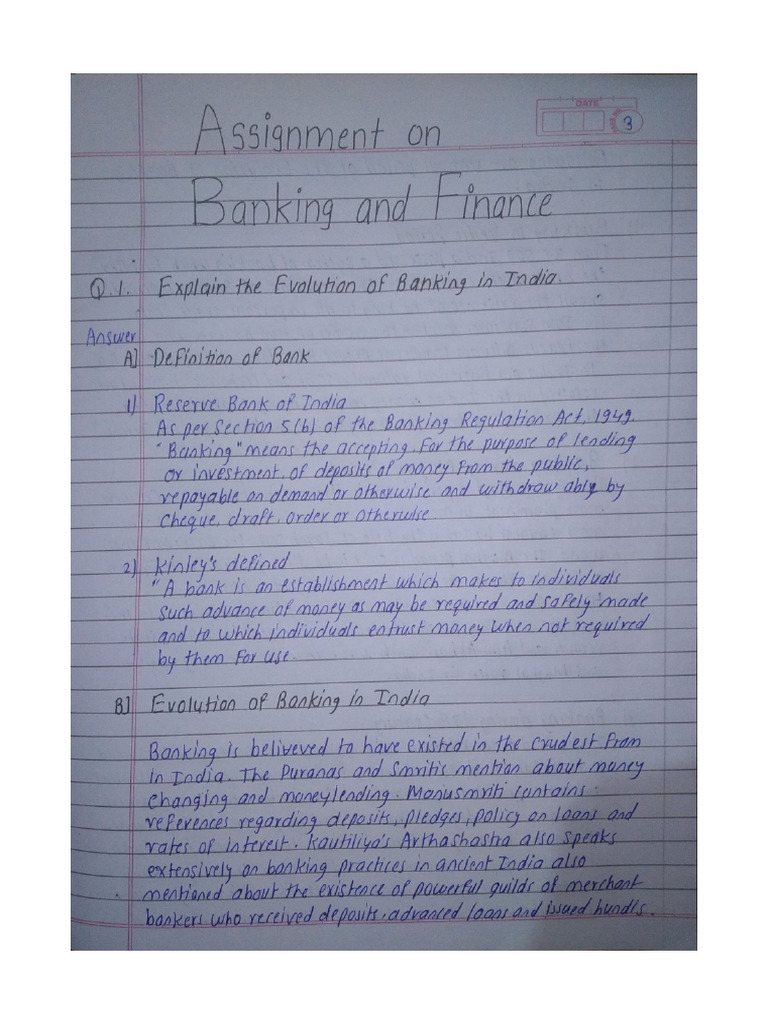 DATE
3
Assignment on
Banking and Finance
Q.1. Explain the Evolution of Banking in India.
Answer
A] Definition of Bank
1) Reserve Bank of India
As per Section 5(b) of the Banking Regulation Act, 1949.
"Banking" means the accepting. For the purpose of lending
or investment, of deposits of money from the public,
repayable on demand or otherwise and withdraw ably by
cheque, draft, order or otherwise
2) Kinley's defined
"A bank is an establishment which makes to individuals
such advance of money as may be required and safely made
and to which individuals entrust money when not required
by them for use.
B] Evolution of Banking in India
Banking is beliveved to have existed in the crudest from
in India. The Puranas and Smritis mention about money
changing and moneylending. Manusmriti contains
references regarding deposits, pledges, policy on loans and
rates of interest. Kautiliya's Arthashastra also speaks
extensively on banking practices in ancient India also
mentioned about the existence of powerful guilds of merchant
bankers who received deposits, advanced loans and issued hundis.